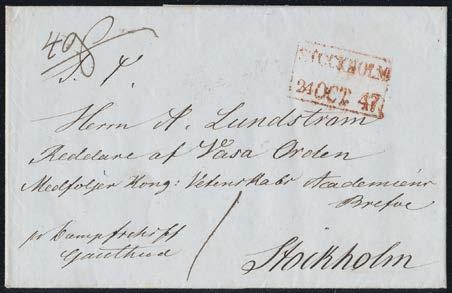 STOCKHOLM
24 OCT. 47.
S. T.
Herrn A. Lundström
Reddare af Vasa Orden
Medföljer Kong: Vetenskabs Academiens
Brefve
pr Dampfschiff
Gauthiod
Stockholm